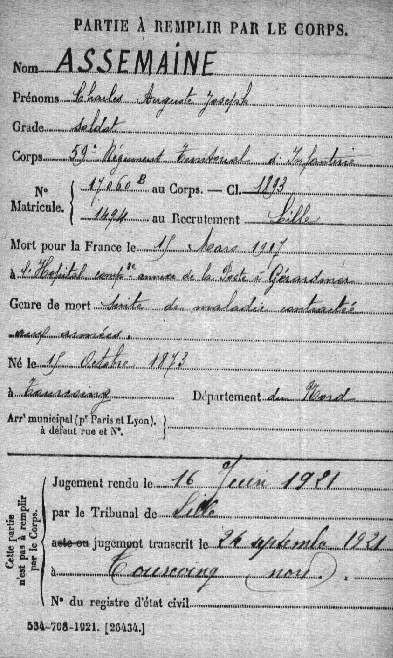 PARTIE À REMPLIR PAR LE CORPS.
Nom ASSEMAINE
Prénoms Charles Auguste Joseph
Grade soldat
Corps 59e Régiment Territorial d'Infanterie
N° Matricule. { 17060 B au Corps. — Cl. 1893
1494 au Recrutement Lille
Mort pour la France le 15 Mars 1917
à l'Hôpital comp.re annexe de la Poste à Gérardmer
Genre de mort suite de maladie contractée
aux armées.
Né le 15 Octobre 1873
à Tourcoing Département du Nord
Arrt municipal (pr Paris et Lyon),
à défaut rue et N°.
Cette partie n'est pas à remplir par le Corps.
Jugement rendu le 16 Juin 1921
par le Tribunal de Lille
acte ou jugement transcrit le 26 septembre 1921
à Tourcoing nord.
N° du registre d'état civil
534-708-1921. [26434.]